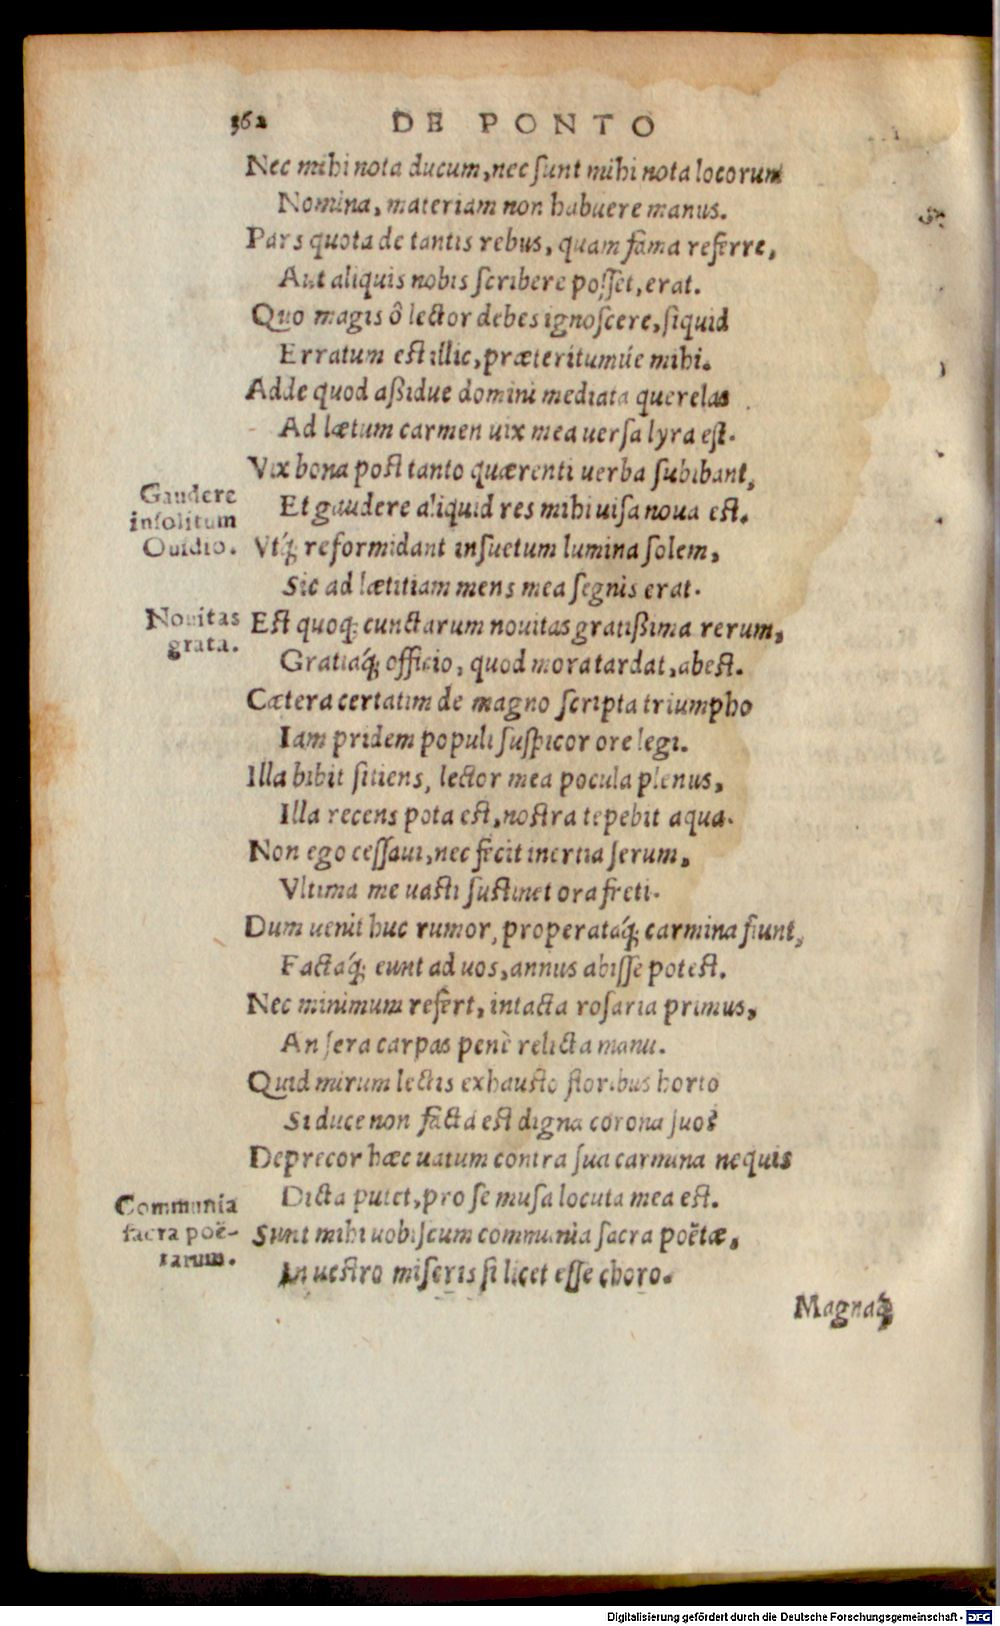 362 DE PONTO
Nec mihi nota ducum, nec ſunt mihi nota locorum
Nomina, materiam non habuere manus.
Pars quota de tantis rebus, quam fama referre,
Aut aliquis nobis ſcribere poſſet, erat.
Quo magis ô lector debes ignoſcere, ſiquid
Erratum est illic, præteritumúe mihi.
Adde quod aßidue domini mediata querelas
Ad lætum carmen uix mea uerſa lyra eſt.
Vix bona post tanto quærenti uerba ſubibant,
Et gaudere aliquid res mihi uiſa noua est.
Vtq́; reformidant inſuetum lumina ſolem,
Sic ad lætitiam mens mea ſegnis erat.
Est quoq; cunctarum nouitas gratißima rerum,
Gratiaq́; officio, quod mora tardat, abest.
Cætera certatim de magno ſcripta triumpho
Iam pridem populi ſuſpicor ore legi.
Illa bibit ſitiens, lector mea pocula plenus,
Illa recens pota est, nostra tepebit aqua.
Non ego ceſſaui, nec fecit inertia ſerum,
Vltima me uasti sustinet ora freti.
Dum uenit huc rumor, properataq́; carmina fiunt,
Factaq́; eunt ad uos, annus abiſſe potest.
Nec minimum refert, intacta roſaria primus,
An ſera carpas penè relicta manu.
Quid mirum lectis exhausto floribus horto
Si duce non facta est digna corona ſuo?
Deprecor hæc uatum contra ſua carmina nequis
Dicta putet, pro ſe muſa locuta mea est.
Sunt mihi uobiſcum communia ſacra poëtæ,
In uestro miſeris ſi licet eſſe choro.
Magnaq́;
Gaudere
inſolitum
Ouidio.
Nouitas
grata.
Communia
ſacra poë-
tarum.
Digitalisierung gefördert durch die Deutsche Forschungsgemeinschaft - DFG